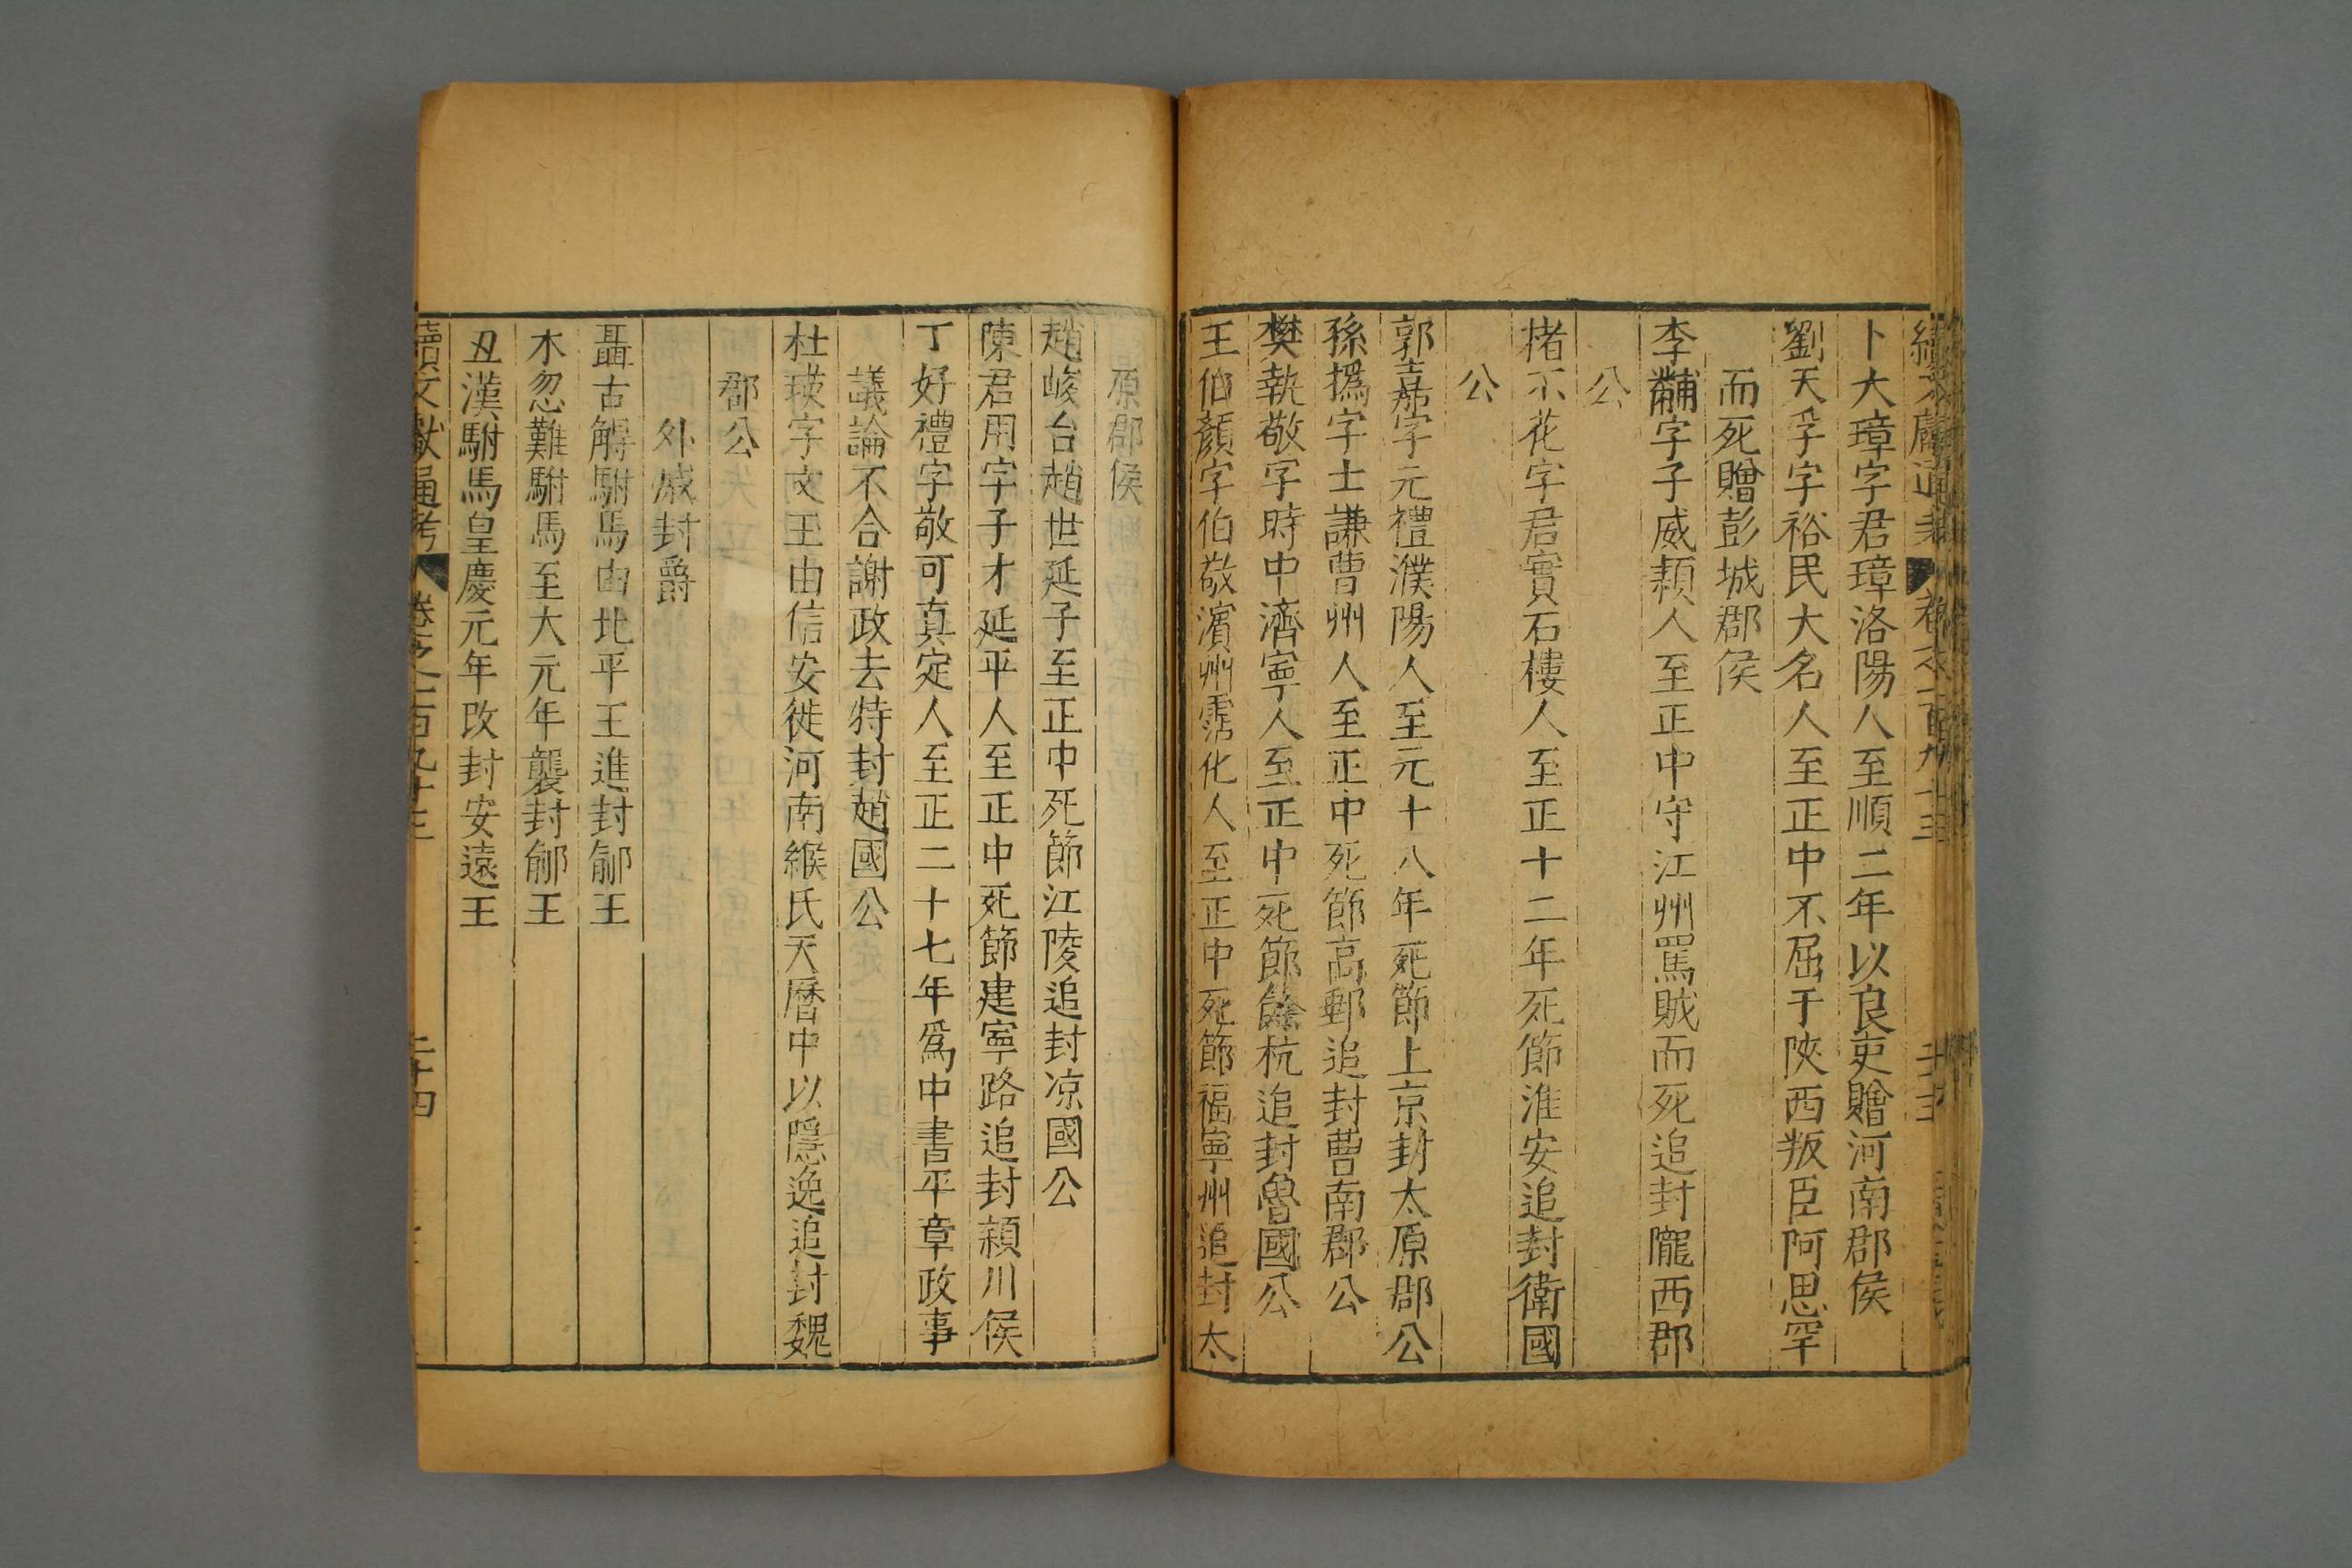 卜大璋字君璋洛陽人至順二年以良吏贈河南郡侯
劉天孚字裕民大名人至正中不屈于陝西叛臣阿思罕
而死贈彭城郡侯
李黼字子威潁人至正中守江州罵賊而死追封隴西郡
公
楮不花字君實石樓人至正十二年死節淮安追封衛國
公
郭嘉字元禮濮陽人至元十八年死節上京封太原郡公
孫撝字士謙曹州人至正中死節高郵追封曹南郡公
樊執敬字時中濟寧人至正中死節餘杭追封魯國公
王伯顏字伯敬濱州霑化人至正中死節福寧州追封太
原郡侯
趙峻台趙世延子至正中死節江陵追封凉國公
陳君用字子才延平人至正中死節建寧路追封潁川侯
丁好禮字敬可真定人至正二十七年爲中書平章政事
議論不合謝政去特封趙國公
杜瑛字文玉由信安徙河南緱氏天曆中以隱逸追封魏
郡公
外戚封爵
聶古觧駙馬由北平王進封鄃王
木忽難駙馬至大元年襲封鄃王
丑漢駙馬皇慶元年改封安遠王
續文獻通考 卷之一百九十三 二十四